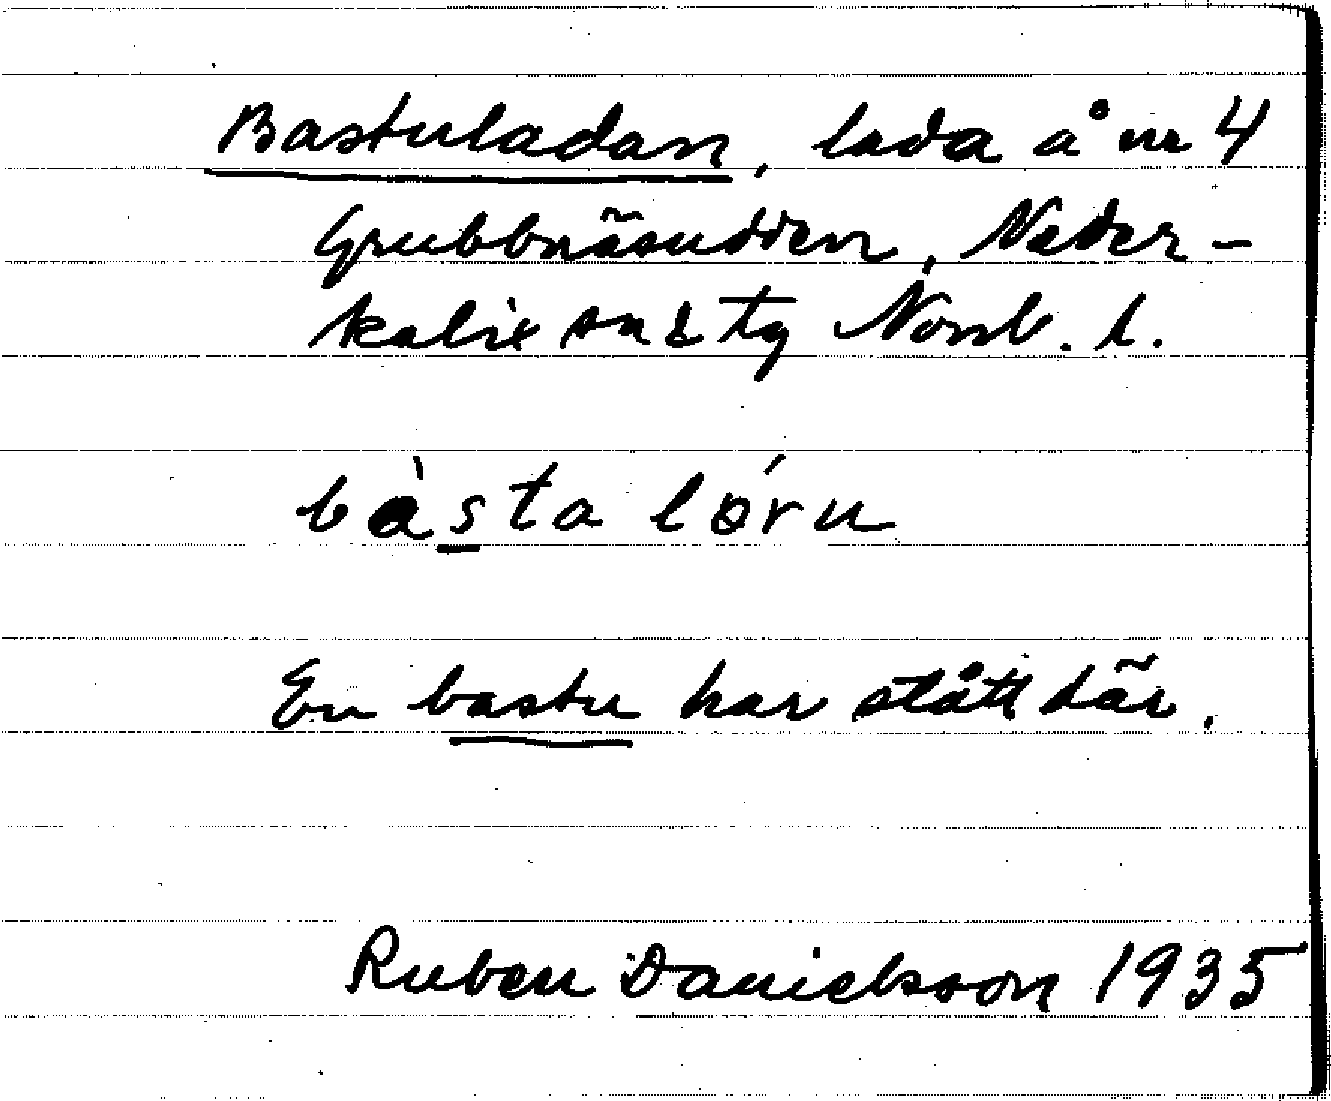 Bastuladan, lada å nr 4
Grubbnäsudden, Neder-
kalix sn & tg Norrb. l.
bàsta lóru
En bastu har stått där.
Ruben Danielsson 1935